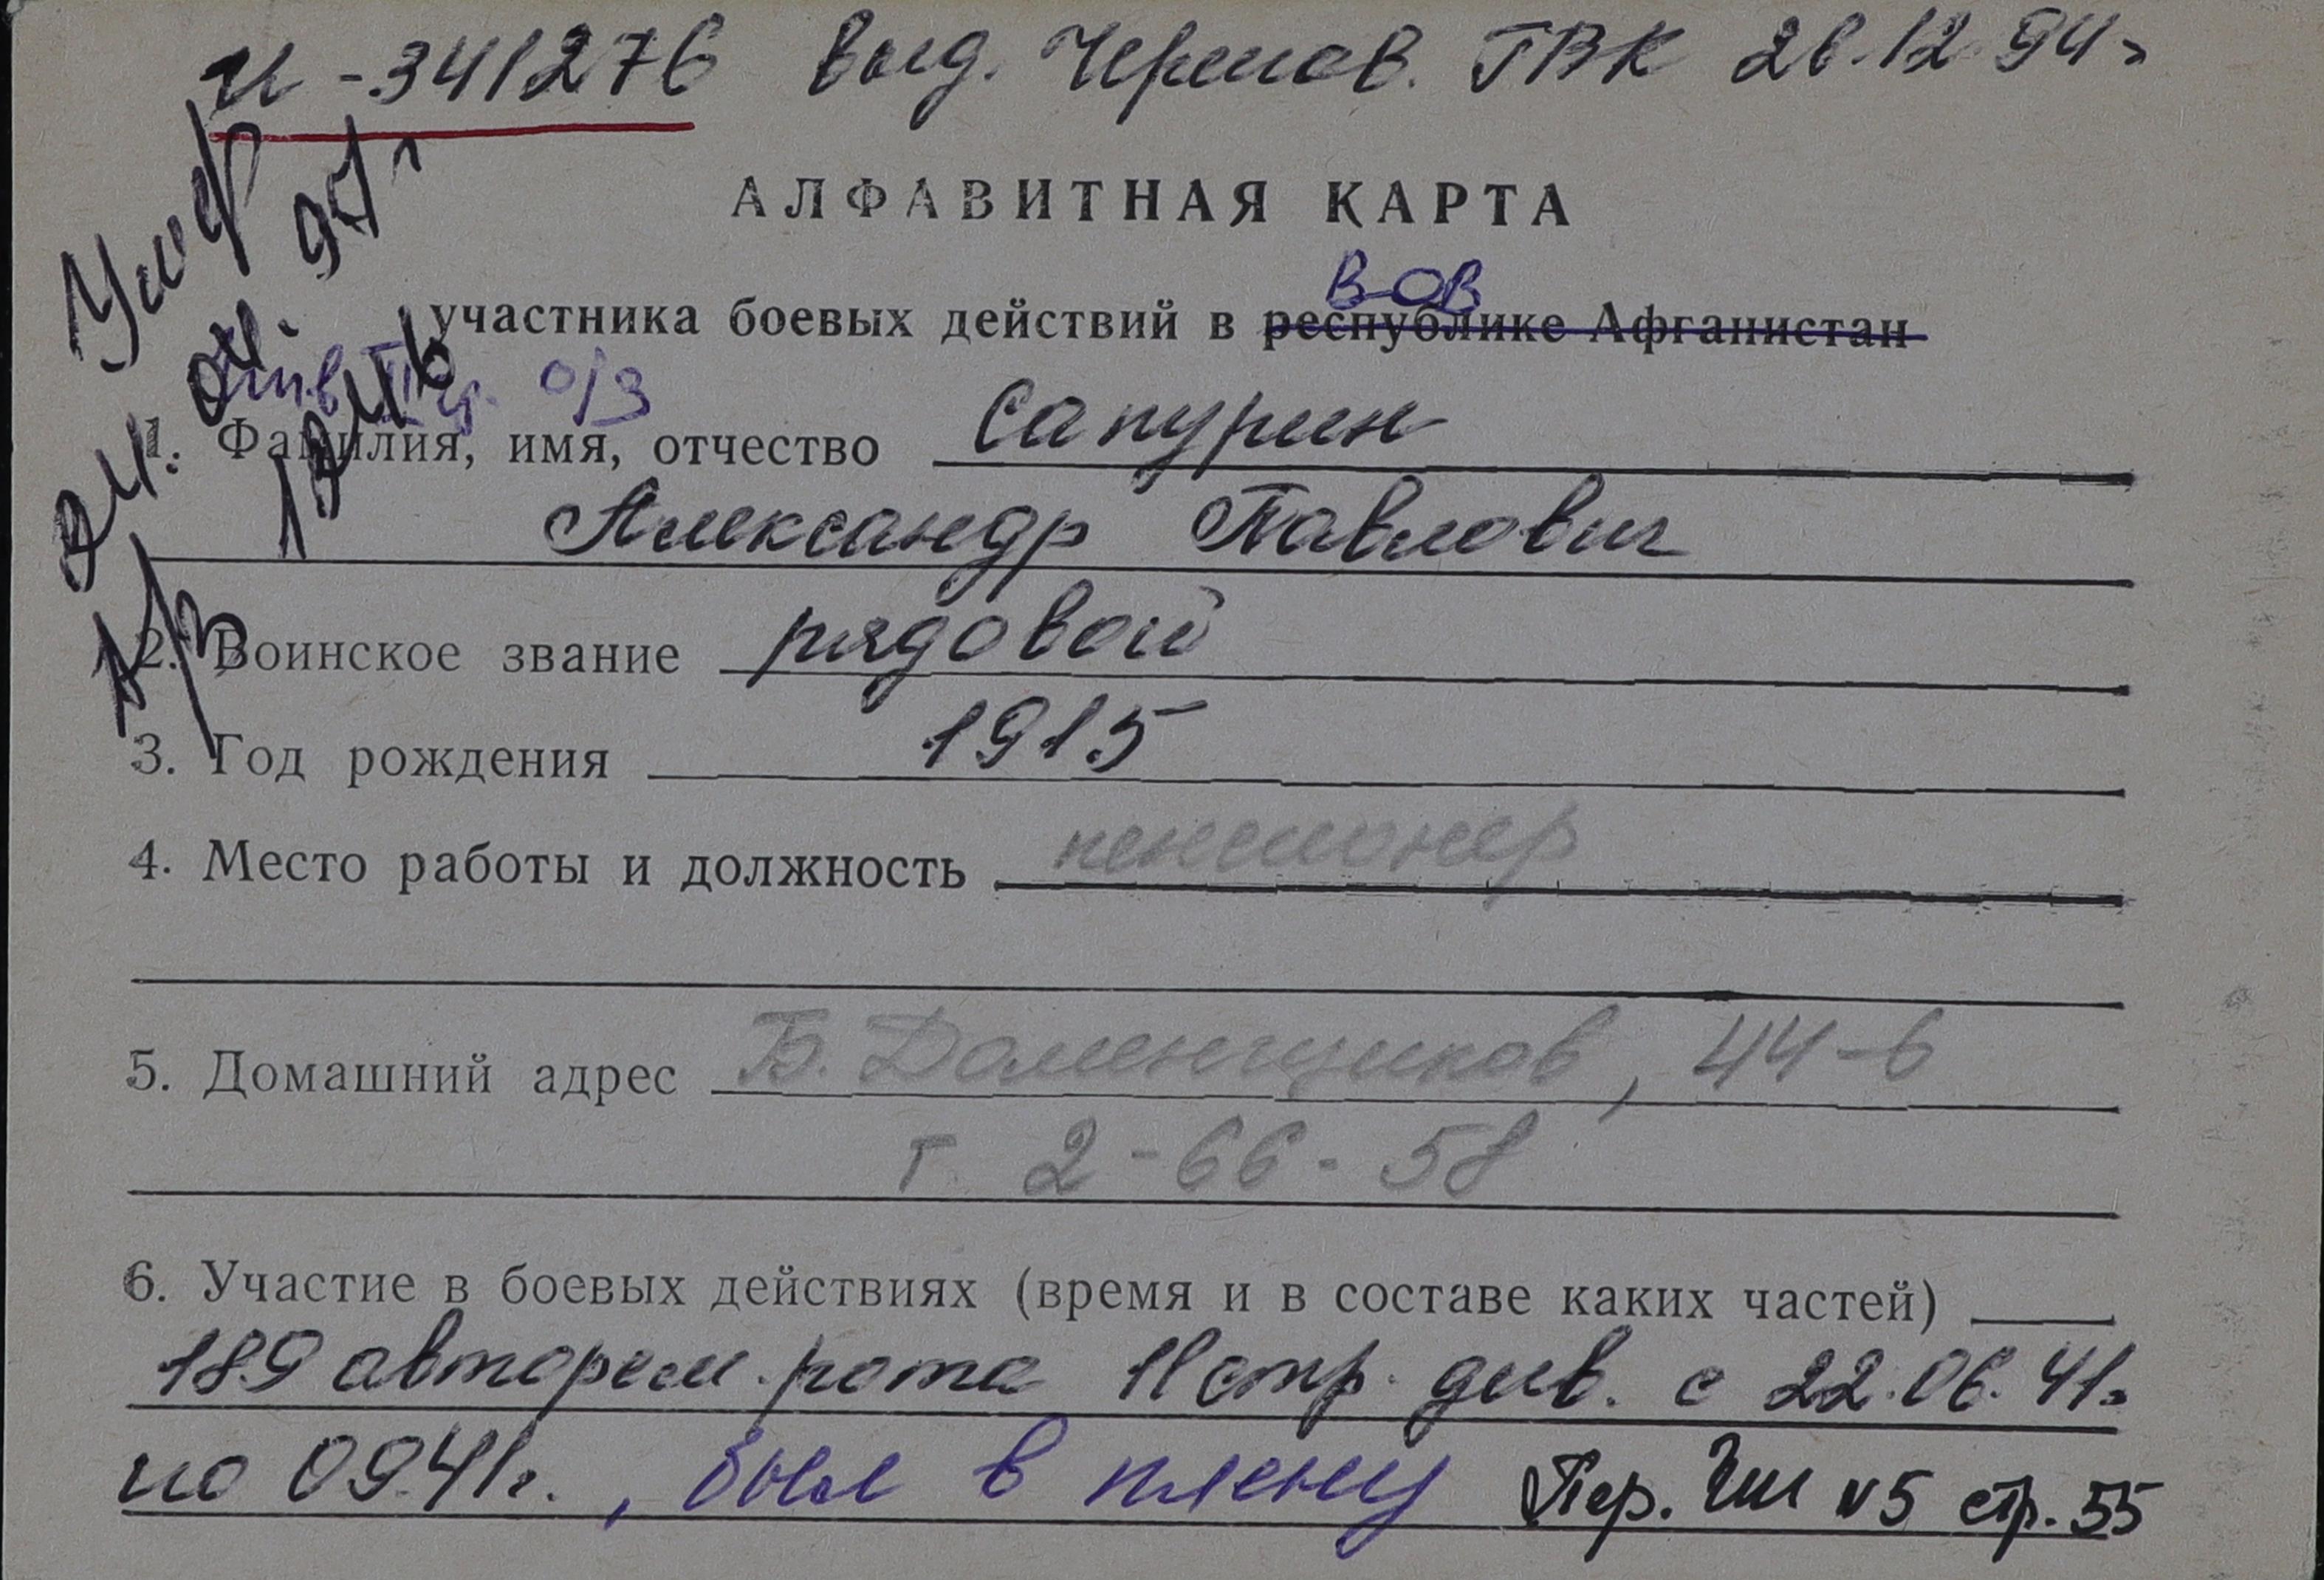 И-341276 выд. Черепов. ГВК 26.12.94г
АЛФАВИТНАЯ КАРТА
ВОВ
участника боевых действий в республике Афганистан
Умер 24.04.97г
инв. II гр. о/з
1. Фамилия, имя, отчество Сапурин
Александр Павлович
2. Воинское звание рядовой
3. Год рождения 1915
4. Место работы и должность пенсионер
5. Домашний адрес Б. Доменщиков, 44-6
т. 2-66-58
6. Участие в боевых действиях (время и в составе каких частей)
189 авторем. рота 11 стр. див. с 22.06.41г
по 09.41г., был в плену Пер. ГШ N5 стр. 55